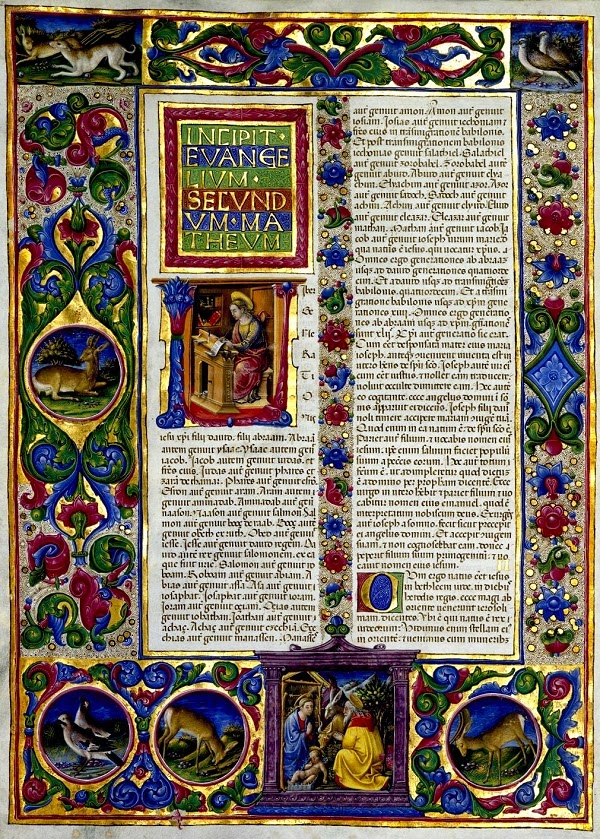 INCIPIT ·
EVANGE
LIUM ·
SECUND
UM · MA
THEUM
Iber
Ge
Ne
Ra
T
O
Nis
iesu xpi filij david. filij abraam. Abraa
autem genuit ysaac. Ysaac autem genuit
iacob. Jacob autem genuit iudas. et
frēs eius. Judas aut genuit phares et
zara de thamar. Phares aut genuit esrō.
Esron aut genuit aram. Aram autem
genuit aminadab. Aminadab aut genuit
naason. Naason aut genuit salmon. Sal
mon aut genuit booz de raab. Booz aut
genuit obeth ex ruth. Obeth aut genuit
iesse. Jesse aut genuit david regem. Da
vid aut rex genuit salomonem. ex ea
que fuit urie. Salomon aut genuit ro
boam. Roboam aut genuit abiam. A
bias aut genuit asa. Asa aut genuit
iosaphat. Josaphat aut genuit ioram.
Joram aut genuit oziam. Ozias autem
genuit ioathan. Joathan aut genuit
achaz. Achaz aut genuit ezechiā. Eze
chias aut genuit manassen. Manasses
aut genuit amon. Amon aut genuit
iosiam. Josias aut genuit iechoniam et
frēs eius in trāsmigratione babilonis.
Et post transmigrationem babilonis
iechonias genuit salathiel. Salathiel
aut genuit zorobabel. Zorobabel aut
genuit abiud. Abiud aut genuit elya
chim. Eliachim aut genuit azor. Azor
aut genuit sadoch. Sadoch aut genuit
achim. Achim aut genuit elyud. Eliud
aut genuit eleazar. Eleazar aut genuit
mathan. Mathan aut genuit iacob. Ja
cob aut genuit ioseph virum marie. de
qua natus ē iesus. qui vocatur xpus.
Omnes ergo generationes ab abraam
usque ad david generationes quatuorde
cim. Et a david usque ad transmigratione
babilonis. quatuordecim. Et a trāsmi
gratione babilonis usque ad xpm gene
rationes
Cum eēt desponsata mater eius maria
ioseph. anteque
Joseph aut vir ei
voluit occulte dimittere eam. Hec aut
eo cogitante. ecce angelus domini
apparuit ei dicens. Joseph fili david
noli timere accipere mariam
Pariet aut filium. et vocabis nomen eius
iesum. Ipse enim salvum faciet populū
suum a peccatis eorum. Hoc aut totum
factum ē. ut adimpleretur quod dictum
a domino per prophetam dicentē. Ecce
virgo in utero habebit et pariet filium et vo
cabitur nomen eius emanuel. quod ē
interpretatum nobiscum deus. Exurgens
aut ioseph a somno. fecit sicut precepit
ei angelus domini. Et accepit
suam. et non cognoscebat eam. donec
peperit filium suum primogenitum. et vo
cavit nomen eius iesum.
Um ergo natus eēt iesus
in bethleem iude. in diebus
herodis regis. ecce magi ab
oriente venerunt ierosoli
mam. dicentes. Ubi ē qui natus ē rex
iudeorum. Vidimus enim stellam ei
in oriente. et venimus cum muneribus